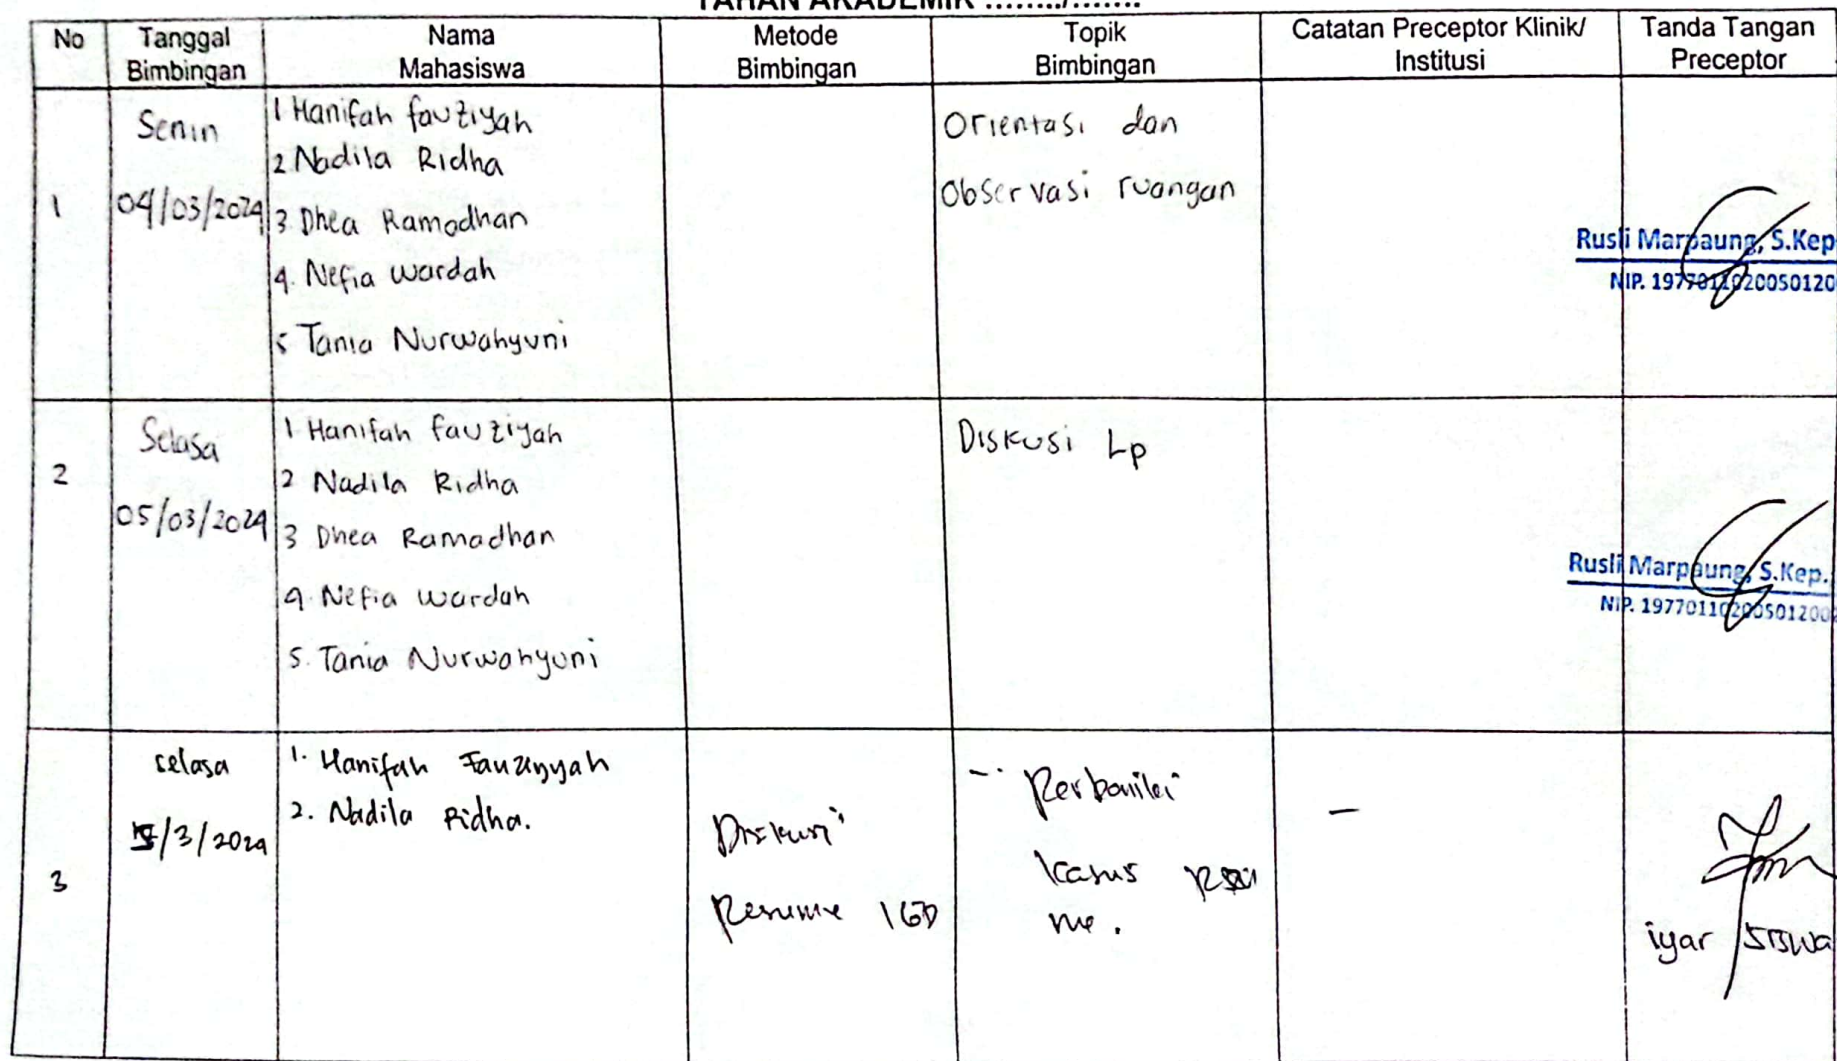 No
Tanggal
Bimbingan
Nama
Mahasiswa
Metode
Bimbingan
Topik
Bimbingan
Catatan Preceptor Klinik/
Institusi
Tanda Tangan
Preceptor
1
Senin
04/03/2024
1 Hanifah fauziyah
2 Nadila Ridha
3. Dhea Ramadhan
4. Nefia wardah
5 Tania Nurwahyuni
Orientasi dan
Observasi ruangan
Rusli Marpaung, S.Kep
NIP. 19770110200501200
2
Selasa
05/03/2024
1. Hanifah fauziyah
2 Nadila Ridha
3 Dhea Ramadhan
4. Nefia wardah
5. Tania Nurwahyuni
Diskusi Lp
Rusli Marpaung, S.Kep.
NIP. 19770110200501200
3
selasa
/3/2024
1. Hanifah Fauziyyah
2. Nadila Ridha.
Diskusi
Resume IGD
-
kasus
me.
-
iyar